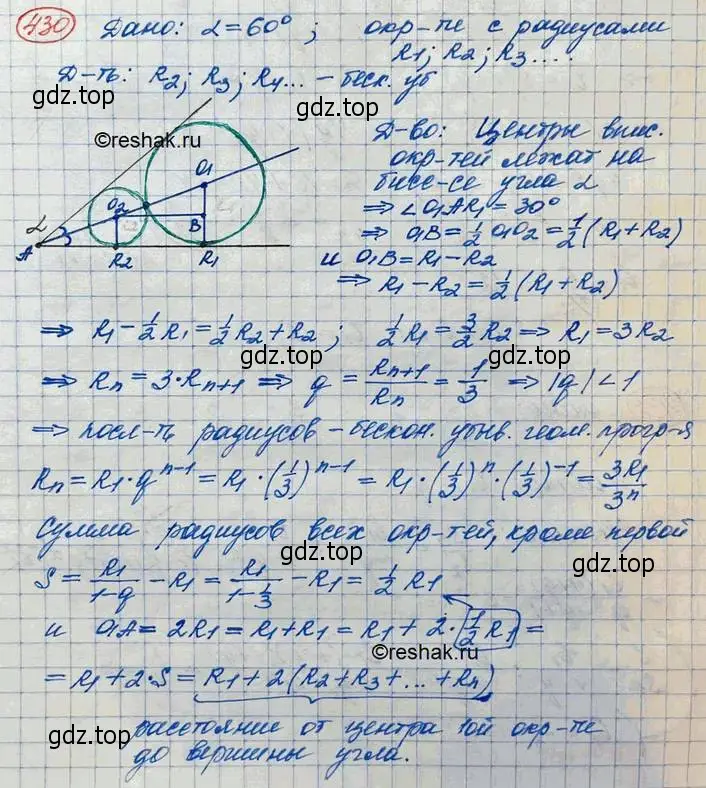 430 Дано: α = 60° ; окр-ти с радиусами
R1; R2; R3 ....
Д-ть: R2; R3; R4... – беск. уб
gdz.top gdz.top
©reshak.ru
Д-во: Центры впис.
окр-тей лежат на
бисс-се угла α
⇒ ∠O1AR1 = 30°
⇒ O1B = 1/2 O1O2 = 1/2 (R1 + R2)
и O1B = R1 – R2
⇒ R1 – R2 = 1/2 (R1 + R2)
α A O2 O1 B R2 R1
gdz.top gdz.top
⇒ R1 – 1/2 R1 = 1/2 R2 + R2 ; 1/2 R1 = 3/2 R2 ⇒ R1 = 3R2
gdz.top gdz.top
⇒ Rn = 3·Rn+1 ⇒ q = Rn+1/Rn = 1/3 ⇒ |q| < 1
⇒ посл-ть радиусов – бескон. убыв. геом. прогр-я
Rn = R1·q^n-1 = R1·(1/3)^n-1 = R1·(1/3)^n·(1/3)^-1 = 3R1/3^n
gdz.top gdz.top
Сумма радиусов всех окр-тей, кроме первой
gdz.top gdz.top
S = R1/1-q – R1 = R1/1-1/3 – R1 = 1/2 R1
и O1A = 2R1 = R1 + R1 = R1 + 2·1/2 R1 =
©reshak.ru
= R1 + 2·S = R1 + 2(R2 + R3 + ... + Rn)
gdz.top gdz.top
расстояние от центра 1ой окр-ти
до вершины угла.